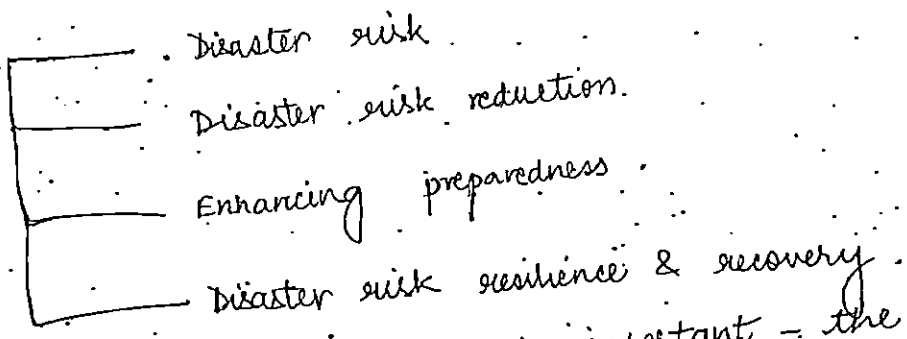 Disaster risk
Disaster risk reduction.
Enhancing preparedness.
Disaster risk resilience & recovery.
- the